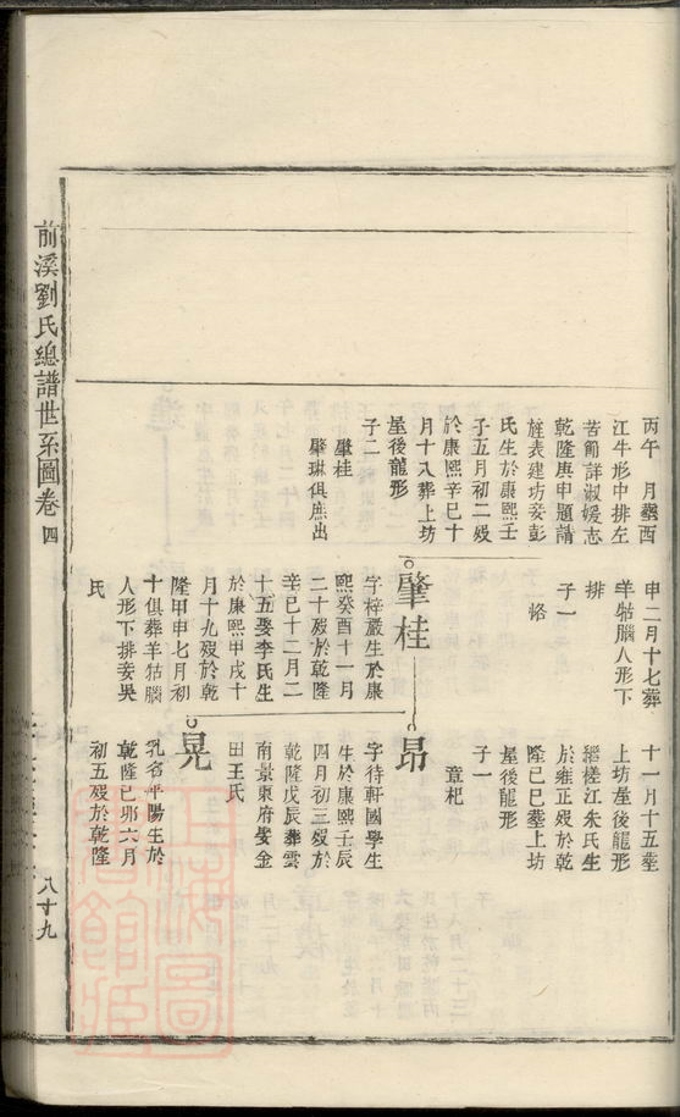 丙午　月塟西
江牛形中排左
苦節詳淑媛志
乾隆庚申題請
旌表建坊妾彭
氏生於康熙壬
子五月初二歿
於康熙辛巳十
月十入葬上坊
屋後龍形
子二
肇桂
肇琳俱庶出
申二月十七葬
羊牯腦人形下
排
子一
恪
肇桂
字梓嚴生於康
熙癸酉十一月
二十歿於乾隆
辛巳十二月二
十五娶李氏生
於康熙甲戌十
月十九歿於乾
隆甲申七月初
十俱葬羊牯腦
人形下排妾吳
氏
十一月十五塟
上坊屋後龍形
繼槎江朱氏生
於雍正歿於乾
隆已巳塟上坊
屋後龍形
子一
章杞
昂
字待軒國學生
生於康熙壬辰
四月初三歿於
乾隆戊辰葬雲
南景東府娶金
田王氏
晃
乳名平陽生於
乾隆已卯六月
初五歿於乾隆
前溪劉氏總譜世系圖卷四
八十九